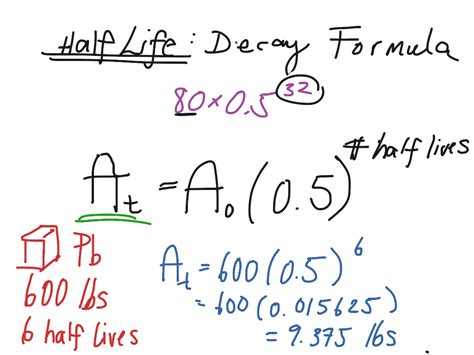 Half Life: Decay Formula
80 × 0.5^32
A_t = A_0 (0.5)^# half lives
Pb
600 lbs
6 half lives
A_t = 600 (0.5)^6
= 600 (0.015625)
= 9.375 lbs